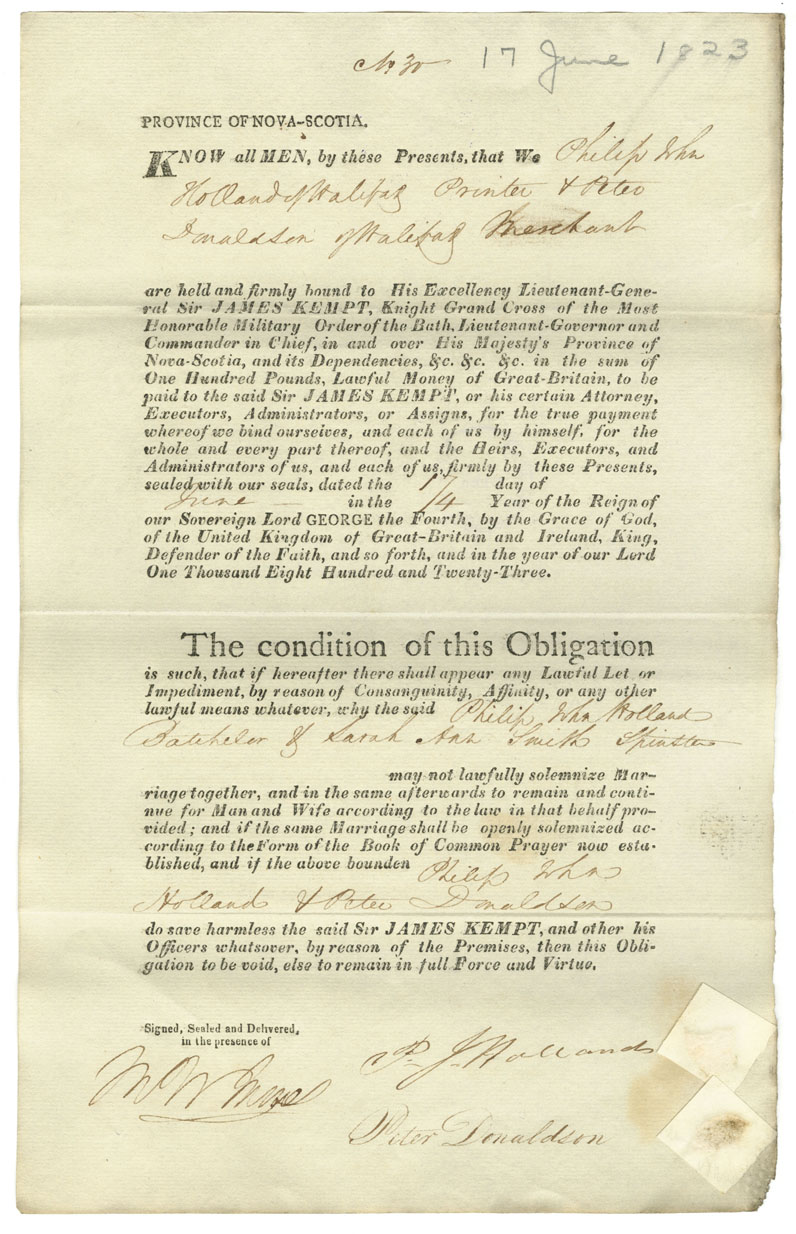 No 30 17 June 1823
PROVINCE OF NOVA-SCOTIA.
KNOW all MEN, by these Presents, that We Philip John
Holland of Halifax Printer & Peter
Donaldson of Halifax Merchant
are held and firmly bound to His Excellency Lieutenant-Gene-
ral Sir JAMES KEMPT, Knight Grand Cross of the Most
Honorable Military Order of the Bath, Lieutenant-Governor and
Commander in Chief, in and over His Majesty's Province of
Nova-Scotia, and its Dependencies, &c. &c. &c. in the sum of
One Hundred Pounds, Lawful Money of Great-Britain, to be
paid to the said Sir JAMES KEMPT, or his certain Attorney,
Executors, Administrators, or Assigns, for the true payment
whereof we bind ourselves, and each of us by himself, for the
whole and every part thereof, and the Heirs, Executors, and
Administrators of us, and each of us, firmly by these Presents,
sealed with our seals, dated the 17 day of
June in the 4 Year of the Reign of
our Sovereign Lord GEORGE the Fourth, by the Grace of God,
of the United Kingdom of Great-Britain and Ireland, King,
Defender of the Faith, and so forth, and in the year of our Lord
One Thousand Eight Hundred and Twenty-Three.
The condition of this Obligation
is such, that if hereafter there shall appear any Lawful Let or
Impediment, by reason of Consanguinity, Affinity, or any other
lawful means whatever, why the said Philip John Holland
Batchelor & Sarah Ann Smith Spinster
may not lawfully solemnize Mar-
riage together, and in the same afterwards to remain and conti-
nue for Man and Wife according to the law in that behalf pro-
vided; and if the same Marriage shall be openly solemnized ac-
cording to the Form of the Book of Common Prayer now esta-
blished, and if the above bounden Philip John
Holland & Peter Donaldson
do save harmless the said Sir JAMES KEMPT, and other his
Officers whatsover, by reason of the Premises, then this Obli-
gation to be void, else to remain in full Force and Virtue.
Signed, Sealed and Delivered,
in the presence of
P. J. Holland
Peter Donaldson